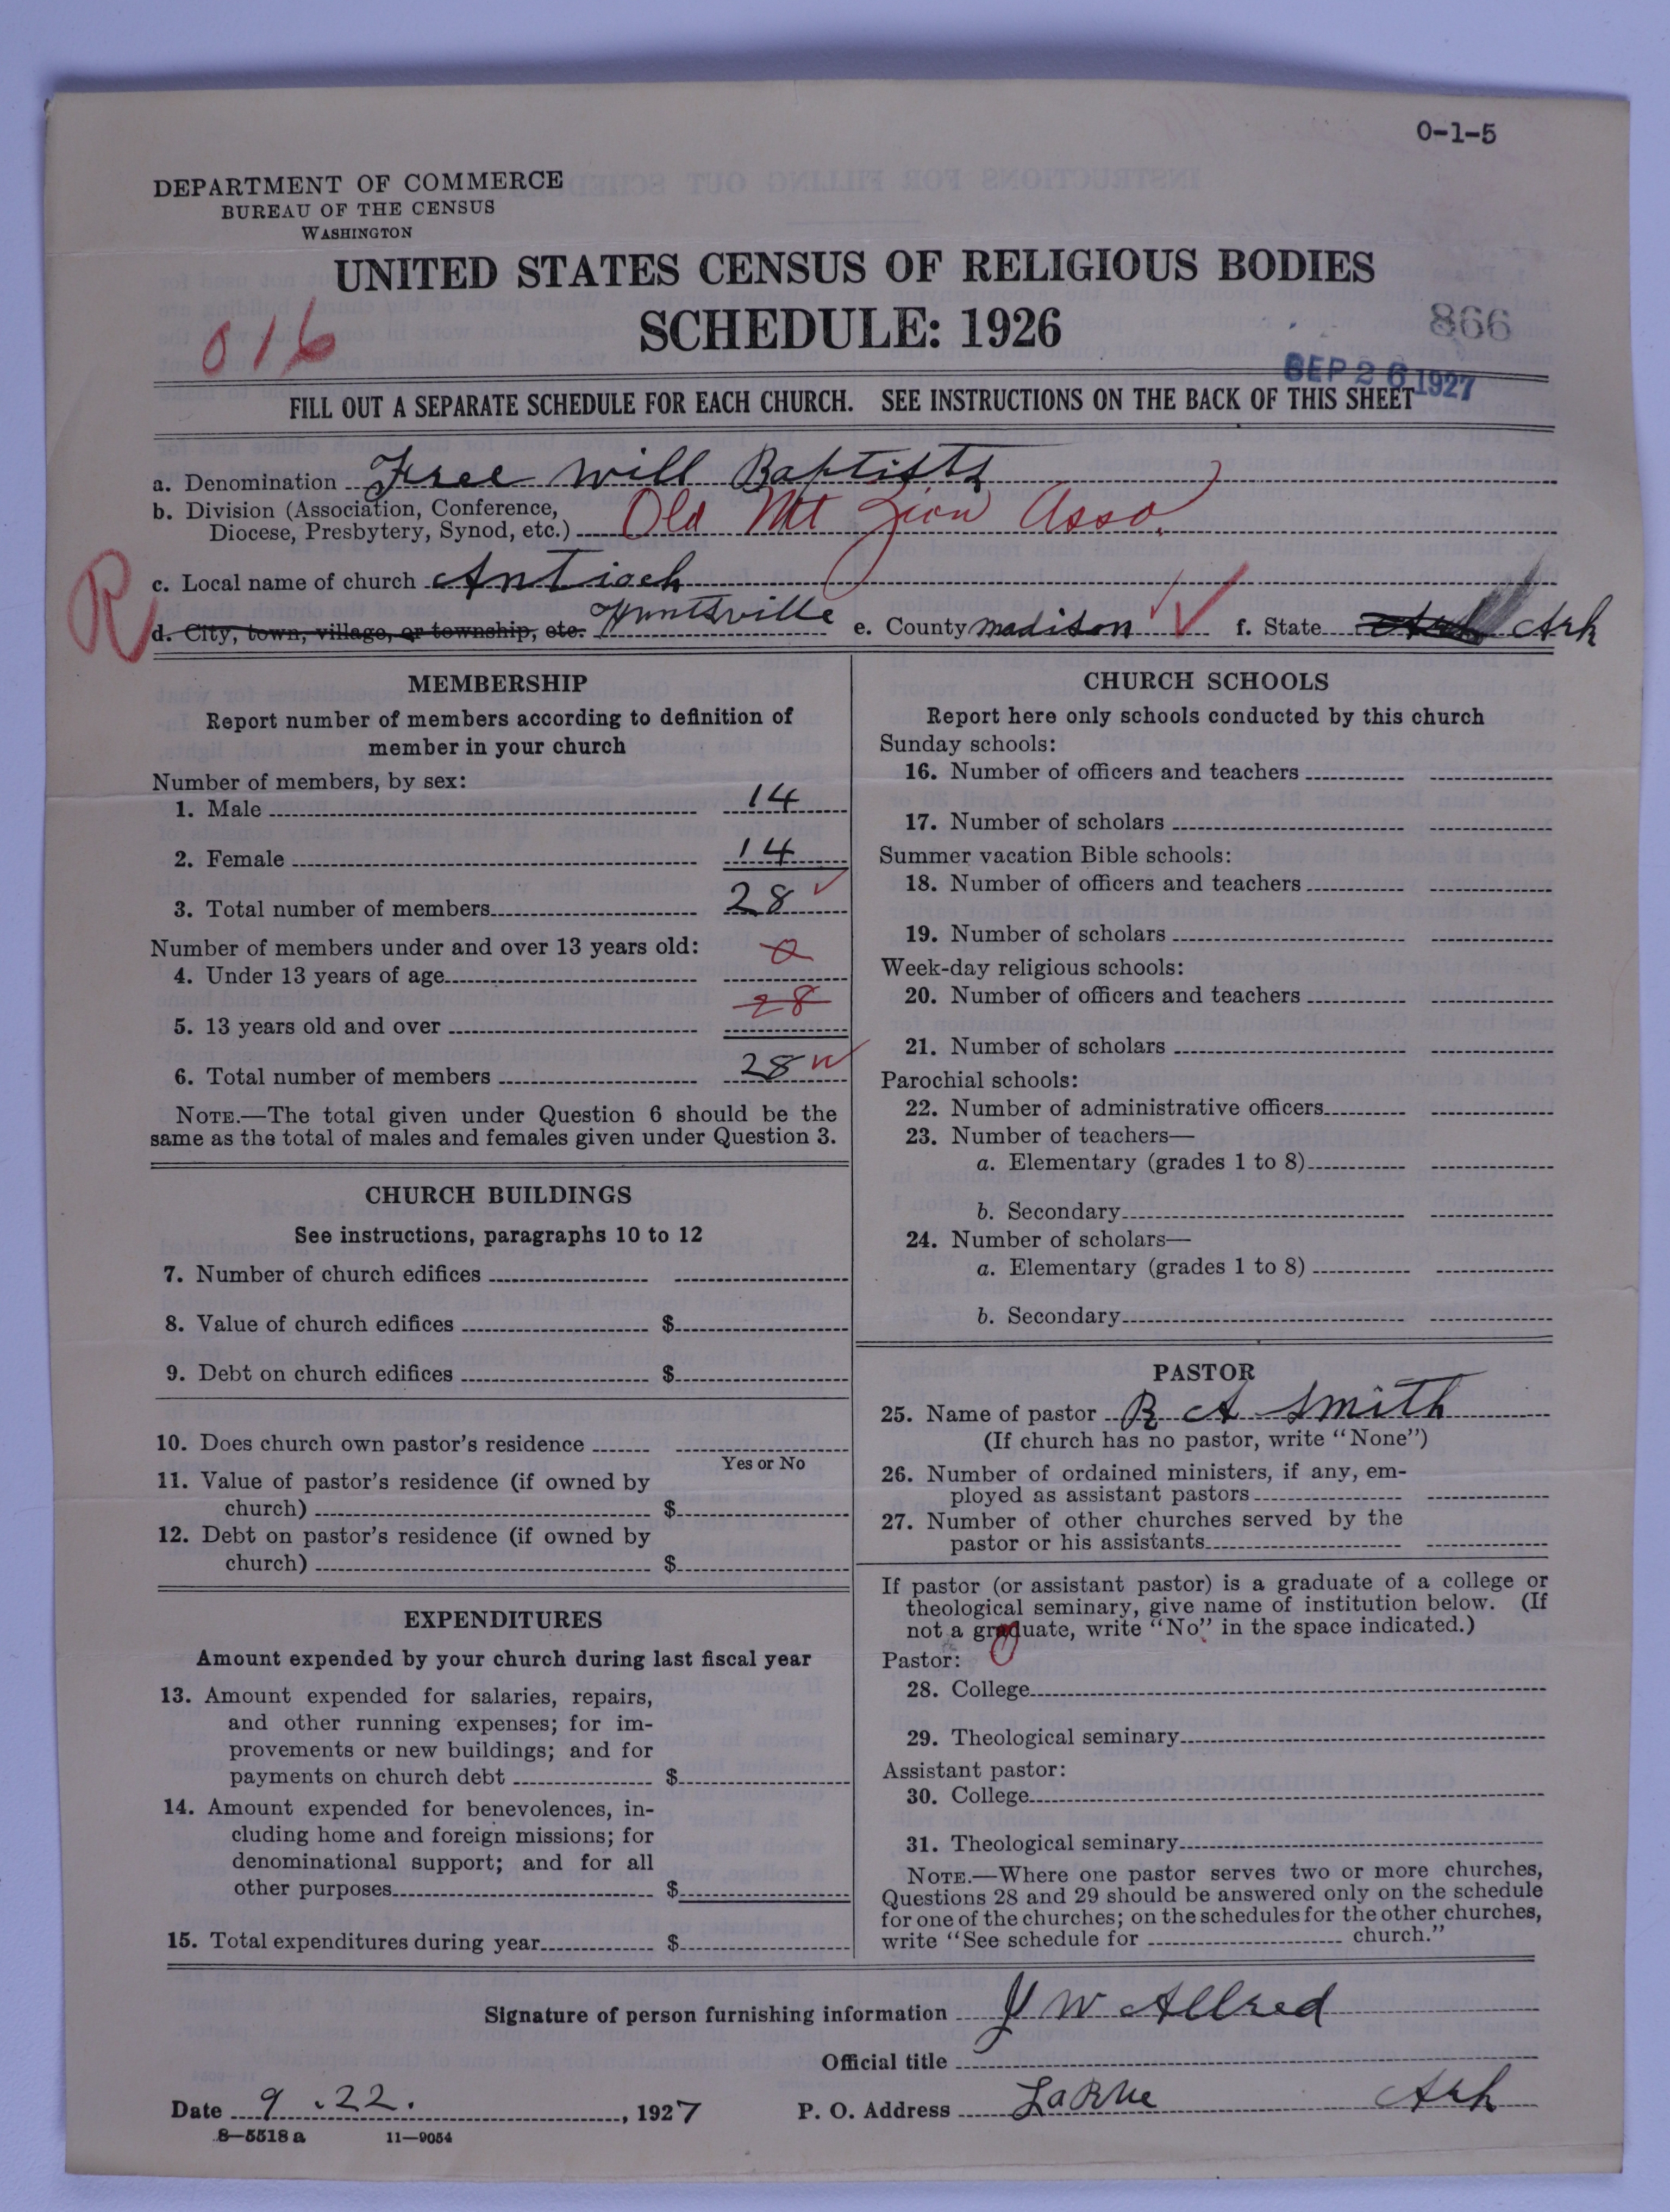 0-1-5
DEPARTMENT OF COMMERCE
BUREAU OF THE CENSUS
WASHINGTON
UNITED STATES CENSUS OF RELIGIOUS BODIES
SCHEDULE: 1926
016
866
SEP 26 1927
FILL OUT A SEPARATE SCHEDULE FOR EACH CHURCH. SEE INSTRUCTIONS ON THE BACK OF THIS SHEET
a. Denomination Free will Baptists
b. Division (Association, Conference,
Diocese, Presbytery, Synod, etc.) Old Mt Zion Asso.
R
c. Local name of church Antioch
d. City, town, village, or township, etc. Huntsville e. County Madison f. State Ark Ark
MEMBERSHIP
Report number of members according to definition of
member in your church
Number of members, by sex:
1. Male 14
2. Female 14
3. Total number of members 28
Number of members under and over 13 years old:
4. Under 13 years of age 0
5. 13 years old and over 28
6. Total number of members 28
NOTE.—The total given under Question 6 should be the
same as the total of males and females given under Question 3.
CHURCH BUILDINGS
See instructions, paragraphs 10 to 12
7. Number of church edifices
8. Value of church edifices $
9. Debt on church edifices $
10. Does church own pastor's residence
Yes or No
11. Value of pastor's residence (if owned by
church) $
12. Debt on pastor's residence (if owned by
church) $
EXPENDITURES
Amount expended by your church during last fiscal year
13. Amount expended for salaries, repairs,
and other running expenses; for im-
provements or new buildings; and for
payments on church debt $
14. Amount expended for benevolences, in-
cluding home and foreign missions; for
denominational support; and for all
other purposes $
15. Total expenditures during year $
CHURCH SCHOOLS
Report here only schools conducted by this church
Sunday schools:
16. Number of officers and teachers
17. Number of scholars
Summer vacation Bible schools:
18. Number of officers and teachers
19. Number of scholars
Week-day religious schools:
20. Number of officers and teachers
21. Number of scholars
Parochial schools:
22. Number of administrative officers
23. Number of teachers—
a. Elementary (grades 1 to 8)
b. Secondary
24. Number of scholars—
a. Elementary (grades 1 to 8)
b. Secondary
PASTOR
25. Name of pastor R A Smith
(If church has no pastor, write "None")
26. Number of ordained ministers, if any, em-
ployed as assistant pastors
27. Number of other churches served by the
pastor or his assistants
If pastor (or assistant pastor) is a graduate of a college or
theological seminary, give name of institution below. (If
not a graduate, write "No" in the space indicated.)
Pastor: 0
28. College
29. Theological seminary
Assistant pastor:
30. College
31. Theological seminary
NOTE.—Where one pastor serves two or more churches,
Questions 28 and 29 should be answered only on the schedule
for one of the churches; on the schedules for the other churches,
write "See schedule for church."
Signature of person furnishing information J W Allred
Official title
Date 9.22., 1927 P. O. Address LaRue Ark
8—5518 a 11—9054